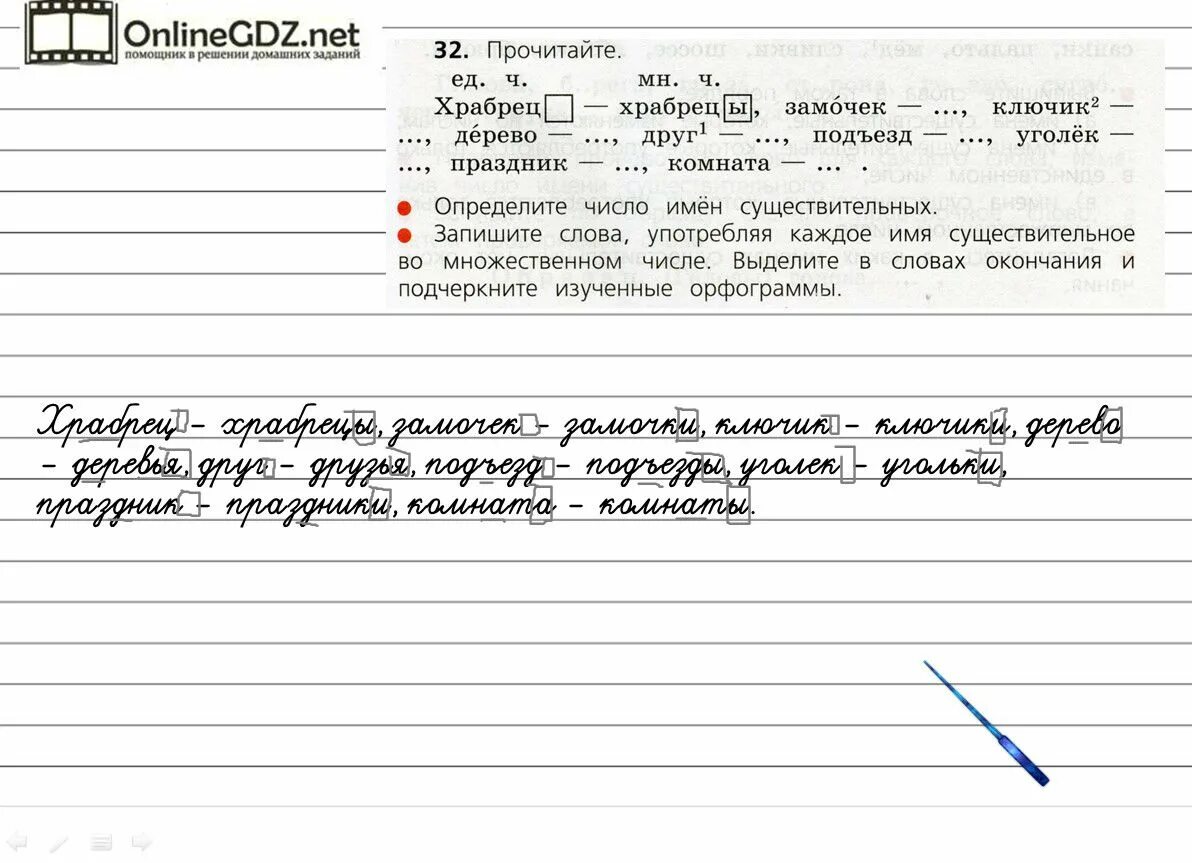 OnlineGDZ.net
помощник в решении домашних заданий
32. Прочитайте.
ед. ч. мн. ч.
Храбрец — храбрецы, замо́чек — ..., ключик² —
..., де́рево — ..., друг¹ — ..., подъезд — ..., уголёк —
..., праздник — ..., комната — ... .
Определите число имён существительных.
Запишите слова, употребляя каждое имя существительное
во множественном числе. Выделите в словах окончания и
подчеркните изученные орфограммы.
Храбрец – храбрецы, замочек – замочки, ключик – ключики, дерево
– деревья, друг – друзья, подъезд – подъезды, уголек – угольки,
праздник – праздники, комната – комнаты.